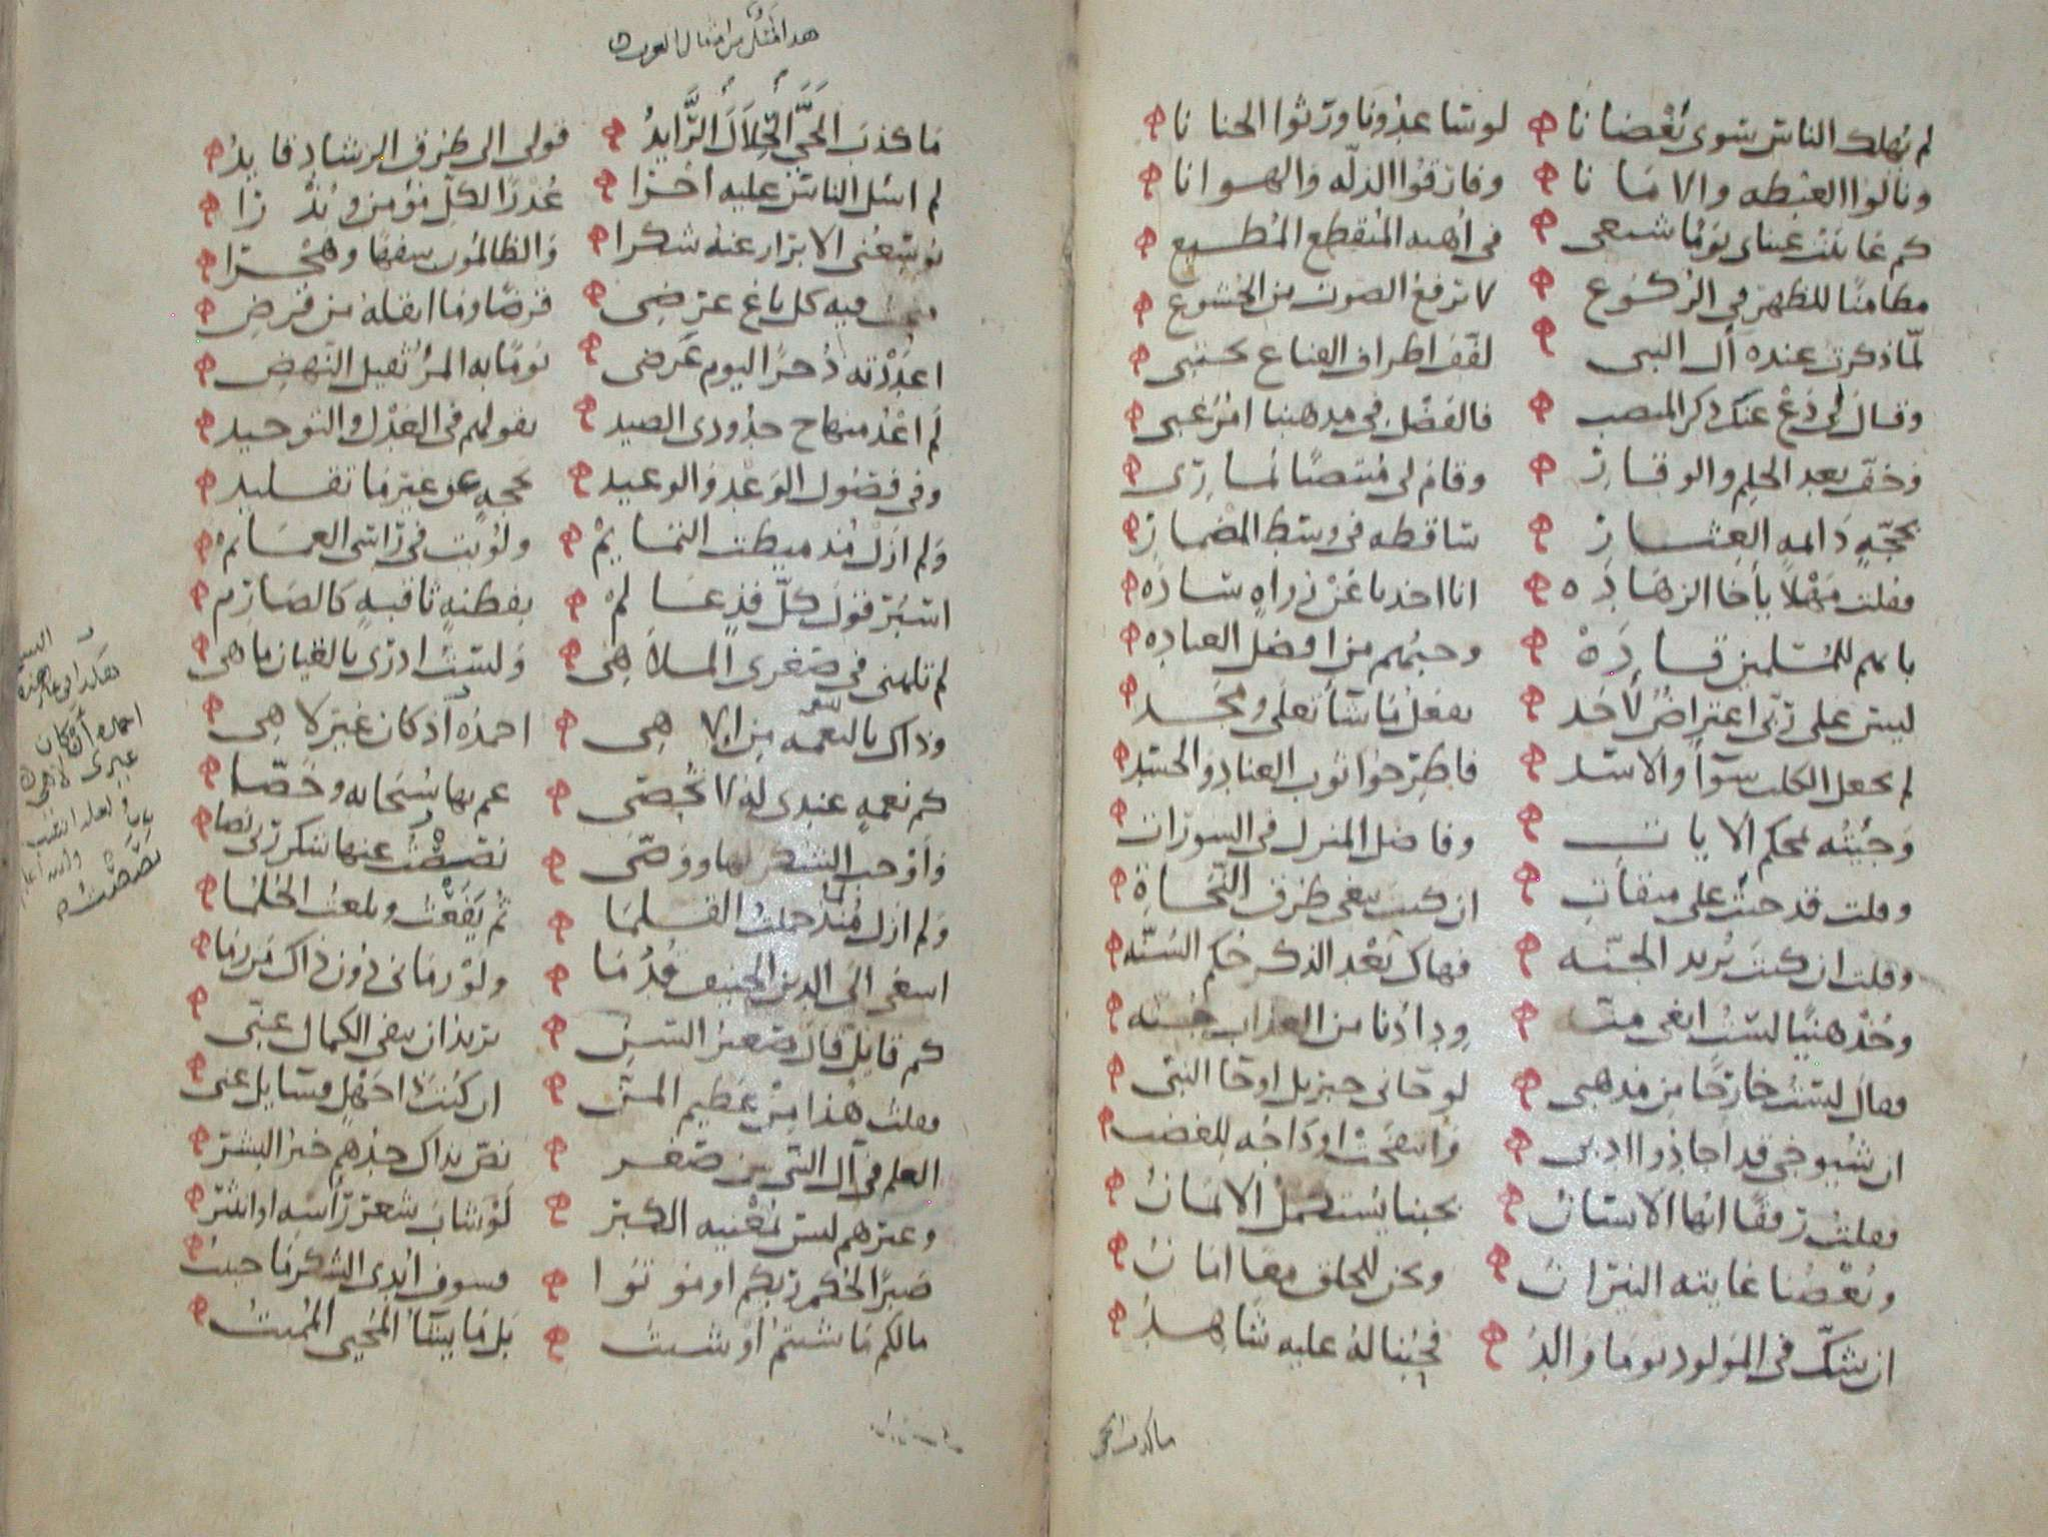 لم يهلك الناس سوى بغضانا لو ساعدونا ورثوا الجنانا
ونالوا الغبطه والامانا وفارقوا الذله والهوانا
كم عاينت عيناي يوما شيعي في أهبه المنقطع المطيع
مطامنا للظهر في الركوع لا ترفع الصوت من الخشوع
لما ذكرت عنده آل النبي لفف اطراف القناع يحتبي
وقال لي دع عنك ذكر المنصب فالفضل في مذهبنا امر غبي
وخف بعد الحلم والوقار وقام لي منتصبا مسارري
بحجة دائمه العثار ساقطه في وسط المضمار
فقلت مهلا يا أخا الزهاده انا اخذنا عن ذراه ساده
بانهم للمسلمين قاده وحبهم من افضل العباده
ليس على ربي اعتراض لاحد يفعل ما شا تعلى ومجد
لم يجعل الكلب سوآ والاسد فاطرحوا ثوب العناد والحسد
وجئته بمحكم الايات وفاضل المنزل في السورات
وقلت قد جئت على ميقات ان كنت تبغي طرق النجاة
وقلت ان كنت تريد الجنه فهاك بعد الذكر حكم السنه
وخذ هنيا لست ابغي منه ودادنا من العذاب جنه
فقال لست خارجا من مذهبي لو جاني جبريل او جا النبي
ان شيوخي قد اجادوا ادبي وانتفخت اوداجه للغضب
فقلت رفقا ايها الانسان بحبنا يستكمل الايمان
وبغضنا غايته النيران ونحن للخلق معا امان
ان شك في المولود يوما والد فحبنا له عليه شاهد
ما كذب الحي
هذا مثل من امثال العرب
ما كذب الحي الحلال الرايد قولي الى طرق الرشاد قايد
لم اسل الناس عليه أجرا عذرا لكل مؤمن ونذرا
يوسعني الابرار عنه شكرا والظالمون سفها وهجرا
فيه كل باغ عرضي قرضا وما اثقله من قرض
اعددته ذخرا ليوم عرضي يوما به المرء ثقيل النهض
لم اعد منهاج جدودي الصيد بقولهم في العدل والتوحيد
وفي فصول الوعد والوعيد بحجة عن غير ما تقليد
ولم ازل مذ ميطت التمايم ولويت في راسي العمايم
اسبر قول كل فذ عالم بفطنة ثاقبة كالصارم
لم تلهني في صغري الملاهي ولست ادري بالغيان ما هي
وذاك بالنعمه من الاهي احمده اذ كان غير لاهي
كم نعمة عندي له لا تحصى عم بها سبحانه وخصا
واوجب الشكر لها ووصى عنها شكر ربي نصا
ولم ازل منذ حملت القلما ثم يفعت وبلغت الحلما
اسعى الى الدين الحنيف قدما ولو رماني دون ذاك من رما
كم قايل قال صغير السن يريد ان ينفي الكمال عني
فقلت هذا من عظيم المن ان كنت ذا جهل فسايل عني
العلم في آل النبي من صغر نص بذاك جدهم خير البشر
وغيرهم ليس بمغنيه الكبر لو شاب شعر رأسه او انتثر
صبرا لحكم ربكم او موتوا فسوف ابدي الشكر ما حييت
ما لكم ما شئتم او شيت بل ما يشأ المحيي المميت